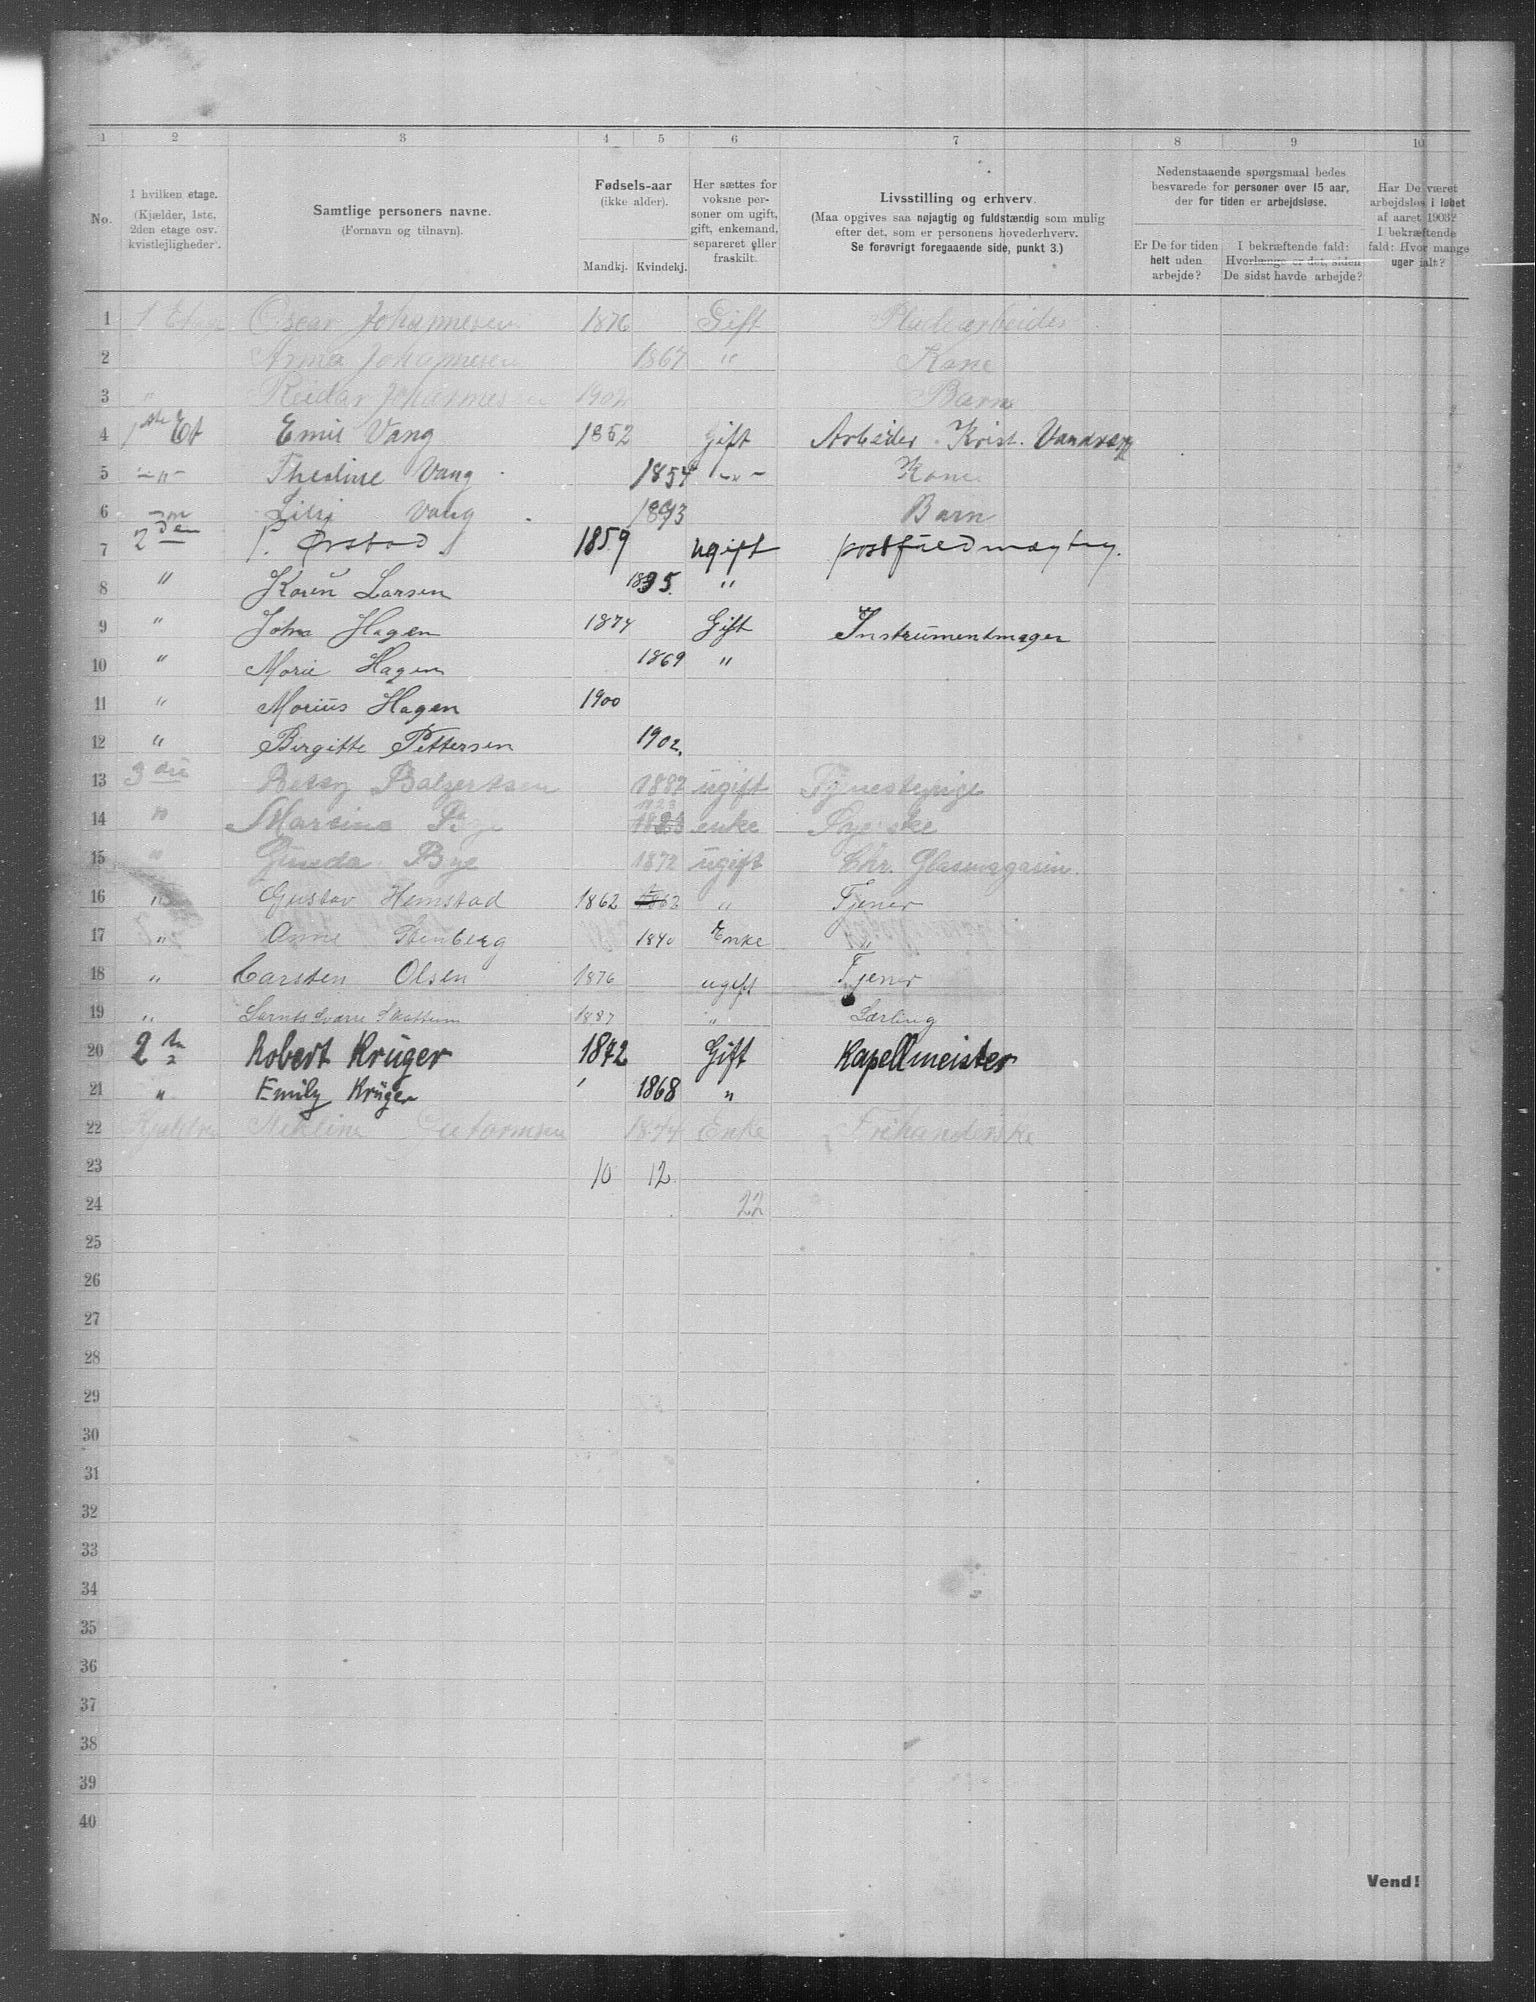 1 2 3 4 5 6 7 8 9 10
No.
I hvilken etage.
(Kjælder, 1ste,
2den etage osv.
kvistlejligheder).
Samtlige personers navne.
(Fornavn og tilnavn).
Fødsels-aar
(ikke alder).
Mandkj. Kvindekj.
Her sættes for
voksne per-
soner om ugift,
gift, enkemand,
separeret eller
fraskilt.
Livsstilling og erhverv.
(Maa opgives saa nøjagtig og fuldstændig som mulig
efter det, som er personens hovederhverv.
Se forøvrigt foregaaende side, punkt 3.)
Nedenstaaende spørgsmaal bedes
besvarede for personer over 15 aar,
der for tiden er arbejdsløse.
Er De for tiden
helt uden
arbejde?
I bekræftende fald:
Hvorlænge er det, siden
De sidst havde arbejde?
Har De været
arbejdsløs i løbet
af aaret 1903?
I bekræftende
fald: Hvor mange
uger ialt?
1 1 Etage Oscar Johannesen 1876 Gift Pladearbeider
2 Anna Johannesen 1867 " Kone
3 " Reidar Johannes 1902 Barn
4 1ste Et Emil Vang 1852 Gift Arbeider Krist. Vandv
5 -"- Thea­line Vang 1854 -"- Kone
6 -"- Lilli Vang 1893 Barn
7 2den P. Ørstad 1859 ugift postfuldmægtig.
8 " Karen Larsen 95. "
9 " John Hagen 1874 Gift Instrumentmager
10 " Marie Hagen 1869 "
11 " Marius Hagen 1900
12 " Birgitte Pettersen 1902.
13 3die Betsy Balzersen 1887 ugift Tjenestepige
14 " Marsine 1823 enke Syerske
15 " Gunda Bye 1872 ugift Chr. Glasmagasin.
16 " Gustav Hemstad 1862 1862 " Tjener
17 " Anne Stenberg 1840 Enke "
18 " Carsten Olsen 1876 ugift Tjener
19 " Skattum 1887 " Lærling
20 2 Robert Krüger 1872 Gift Kapellmeister
21 " Emily Krüger 1868 "
22 Kjelder Guttormsen 1874 Enke Frihanderske
23 10 12
24 22
25
26
27
28
29
30
31
32
33
34
35
36
37
38
39
40
Vend!